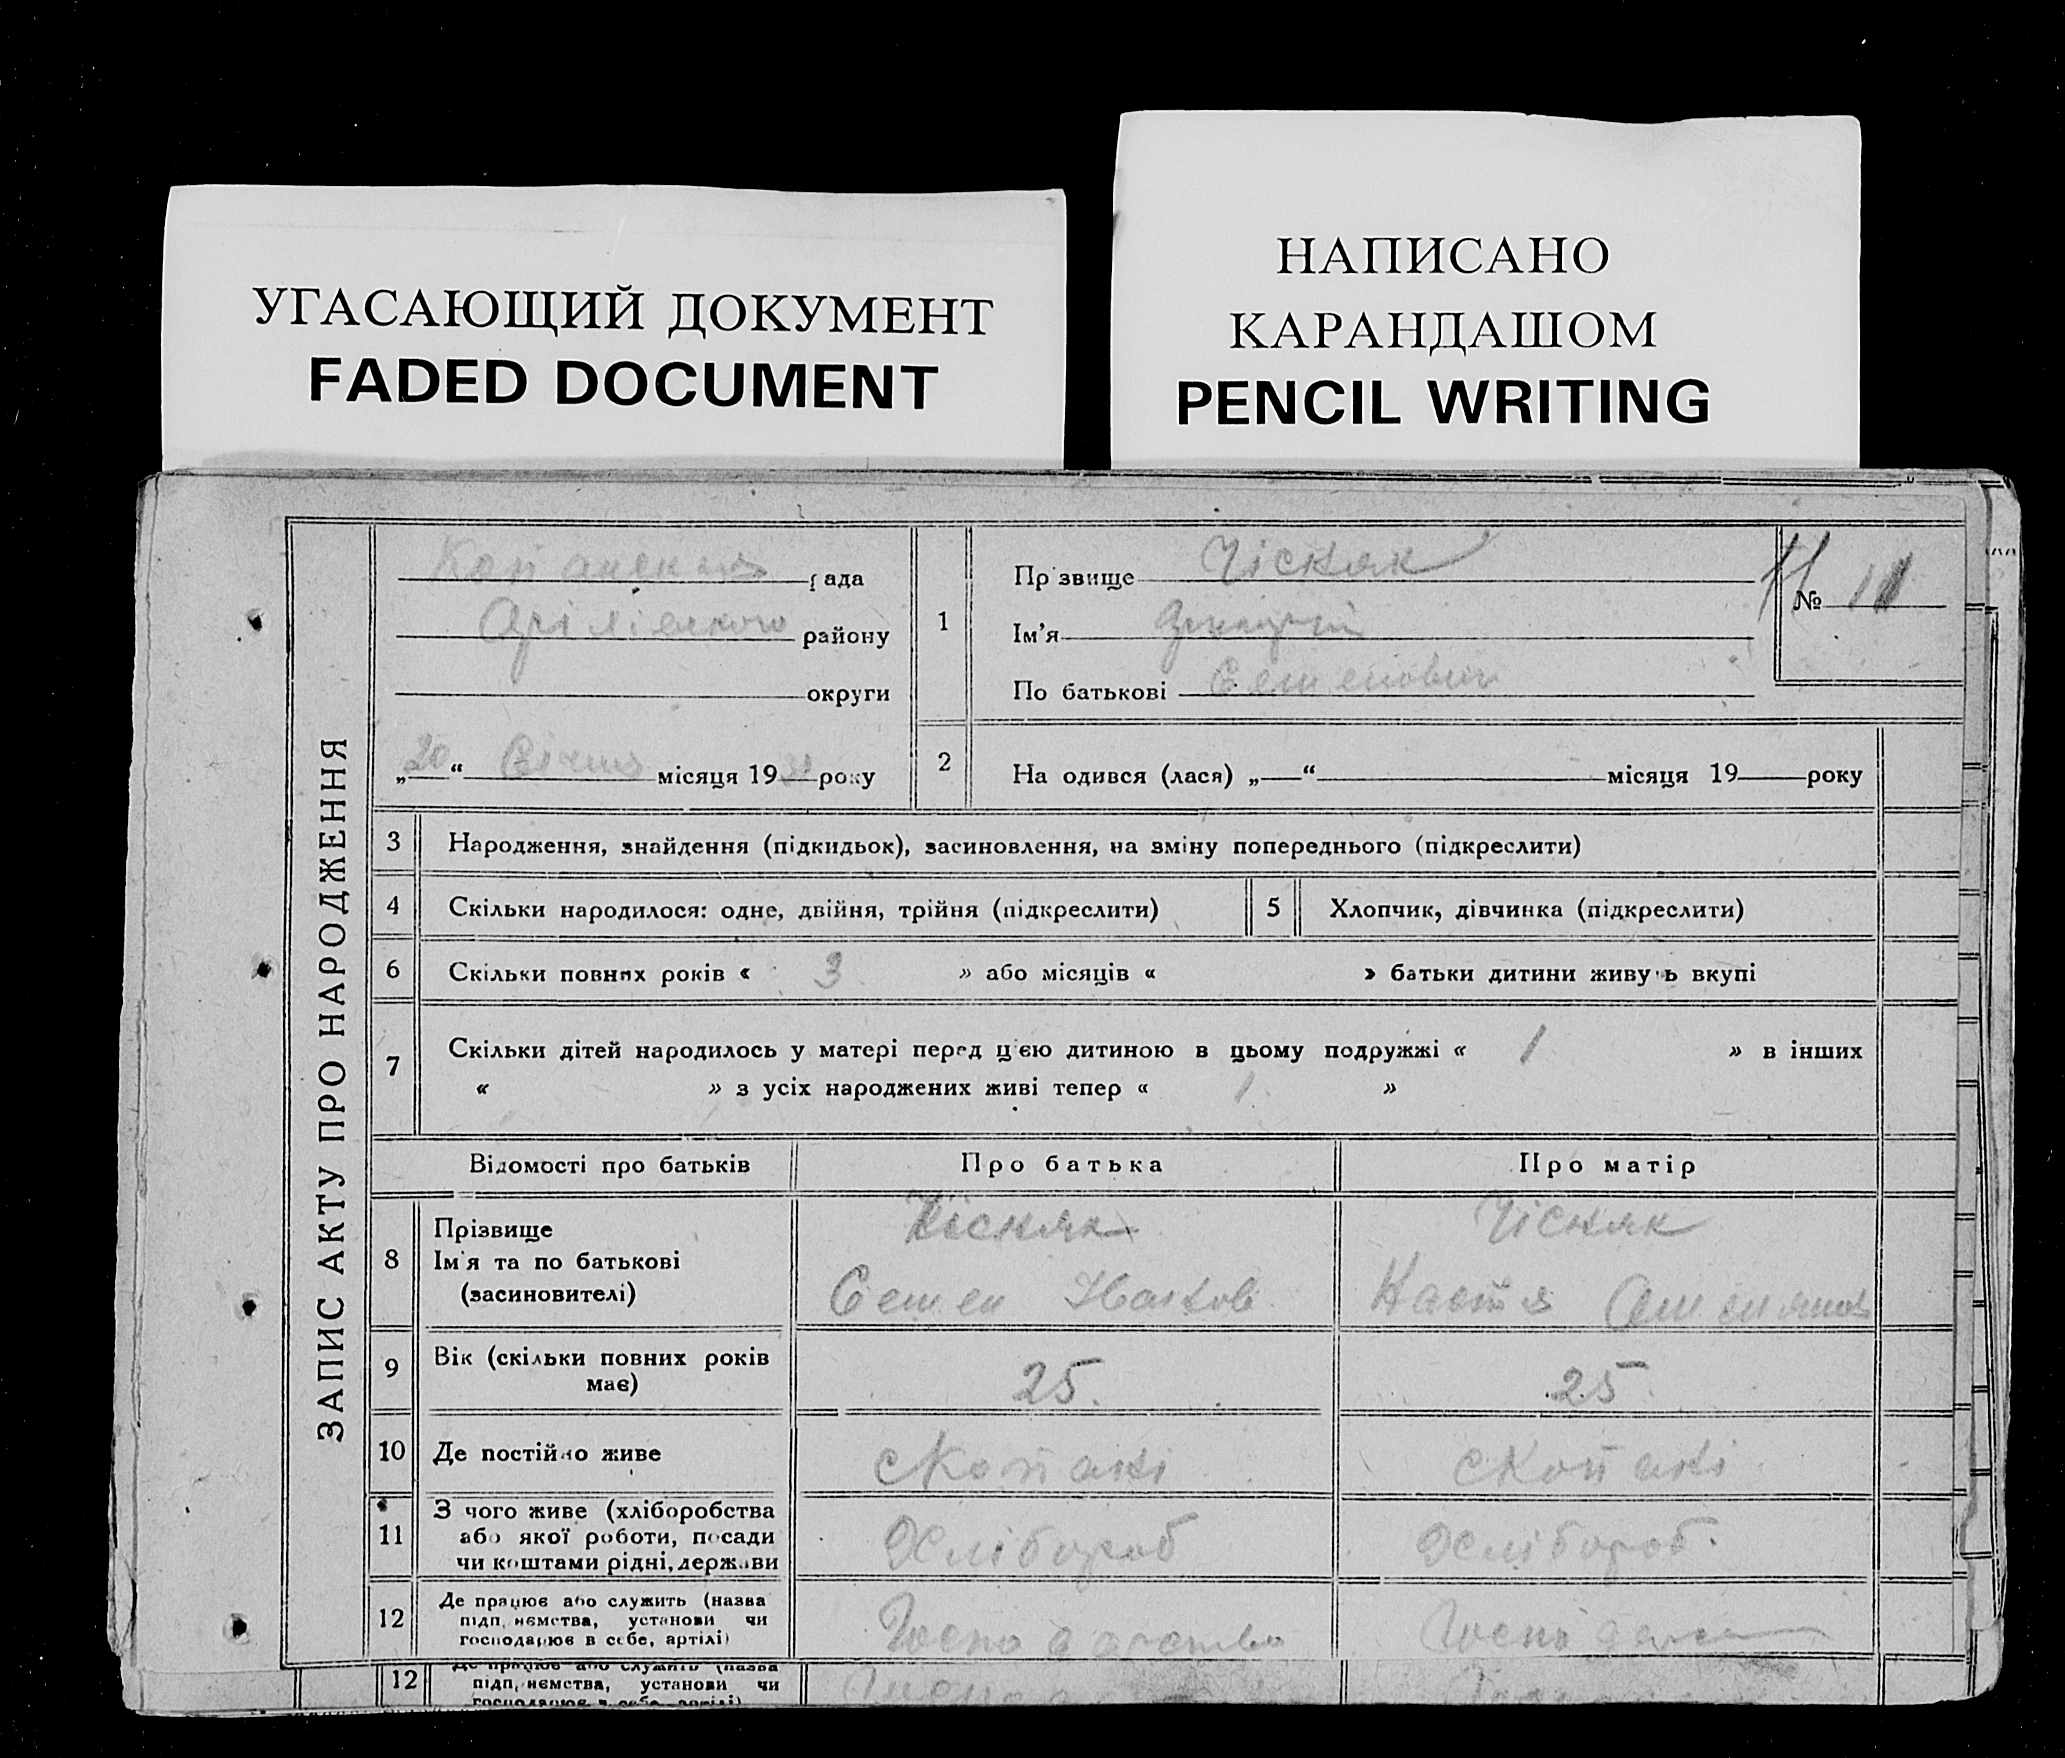 УГАСАЮЩИЙ ДОКУМЕНТ
FADED DOCUMENT
НАПИСАНО
КАРАНДАШОМ
PENCIL WRITING
ЗАПИС АКТУ ПРО НАРОДЖЕННЯ
рада
району
округи
„20“ Січня місяця 19 року
1
Прізвище Чісняк
Ім’я
По батькові Семенович
№ 11
2
На одився (лася) „ “ місяця 19 року
3 Народження, знайдення (підкидьок), засиновлення, на зміну попереднього (підкреслити)
4 Скільки народилося: одне, двійня, трійня (підкреслити)
5 Хлопчик, дівчинка (підкреслити)
6 Скільки повних років « 3 » або місяців « » батьки дитини живуть вкупі
7 Скільки дітей народилось у матері перед цією дитиною в цьому подружжі « 1 » в інших
« » з усіх народжених живі тепер « 1 »
Відомості про батьків Про батька Про матір
8 Прізвище
Ім'я та по батькові
(засиновителі)
Чісняк
Семен
Чісняк
Настя
9 Вік (скільки повних років
має)
25. 25.
10 Де постійно живе
с Копані с Копані
11 З чого живе (хліборобства
або якої роботи, посади
чи коштами рідні, держави
Хлібороб Хлібороб.
12 Де працює або служить (назва
підприємства, установи чи
господарює в себе, артілі)
12 Де працює або служить (назва
підприємства, установи чи
господарює в себе, артілі)